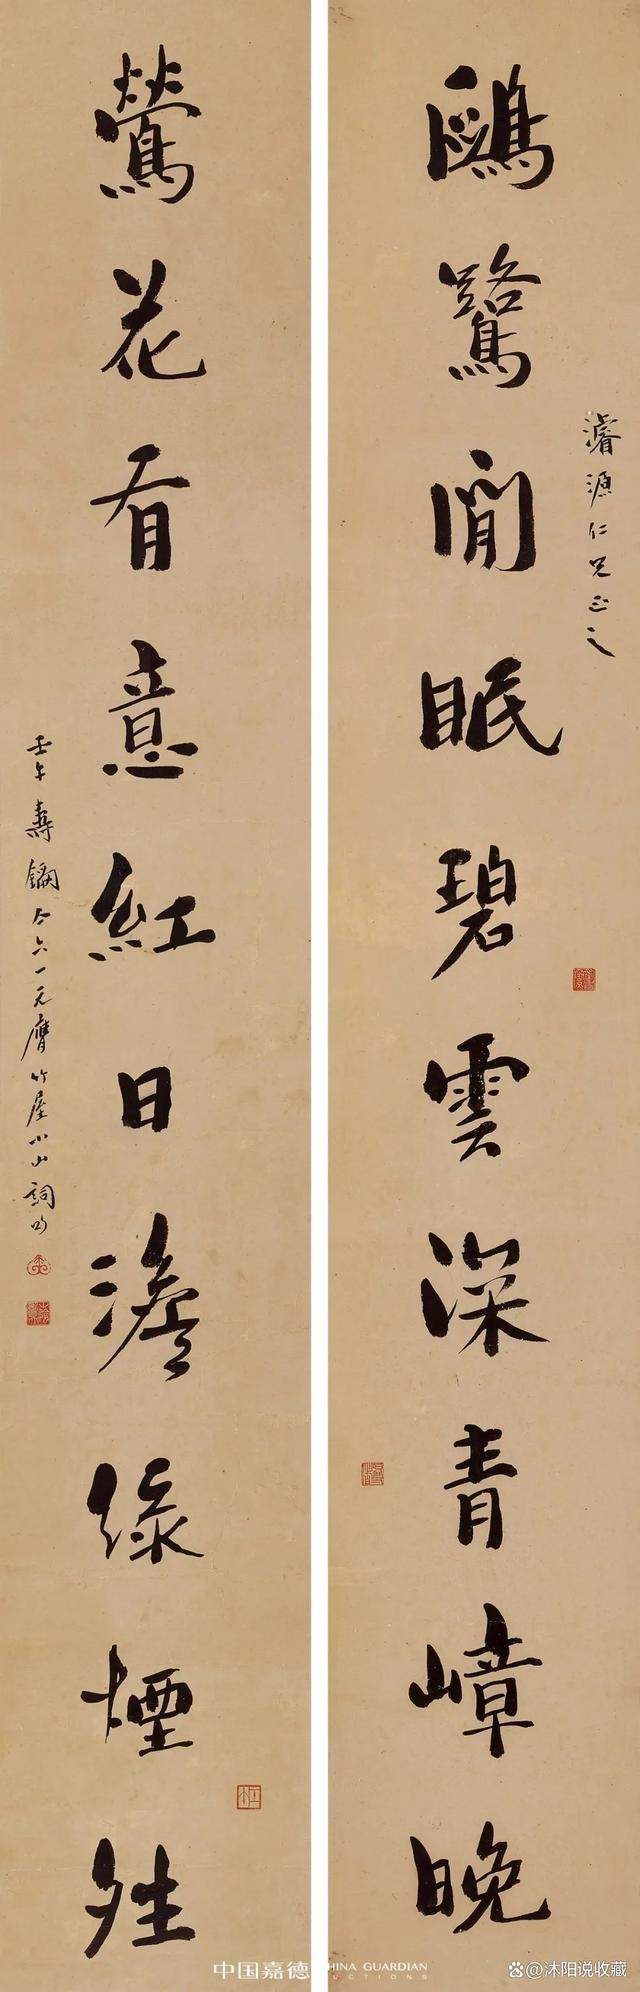 鷗鷺閒眠碧雲深青嶂晚
濬源仁兄正之
鶯花有意紅日澹綠煙夝
壬午壽鑈亼六一元膺竹屋小山詞句
中国嘉德 CHINA GUARDIAN AUCTIONS
@沐阳说收藏